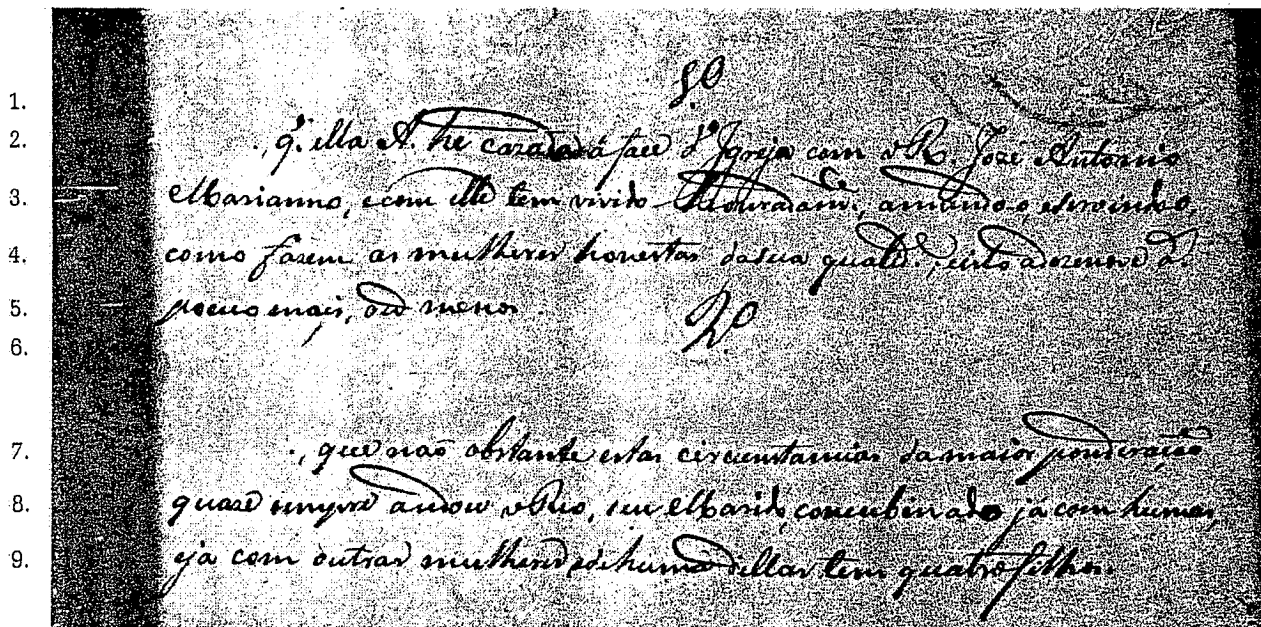 1. P.
2. q. ella A. he cazada á face d'Igreja com o R. José Antonio
3. Marianno, e com elle tem vivido honradam.e, amando o, e servindo o,
4. como fazem as mulheres honestas da sua qualid.e, e isto a dezenove a.
5. pouco mais, ou menos.
6. P.
7. que não obstante estas circunstancias da maior ponderação
8. quaze sempre andou o Reo, seu Marido, concubinado já com humas,
9. e já com outras mulheres, e de huma dellas tem quatro filhos.